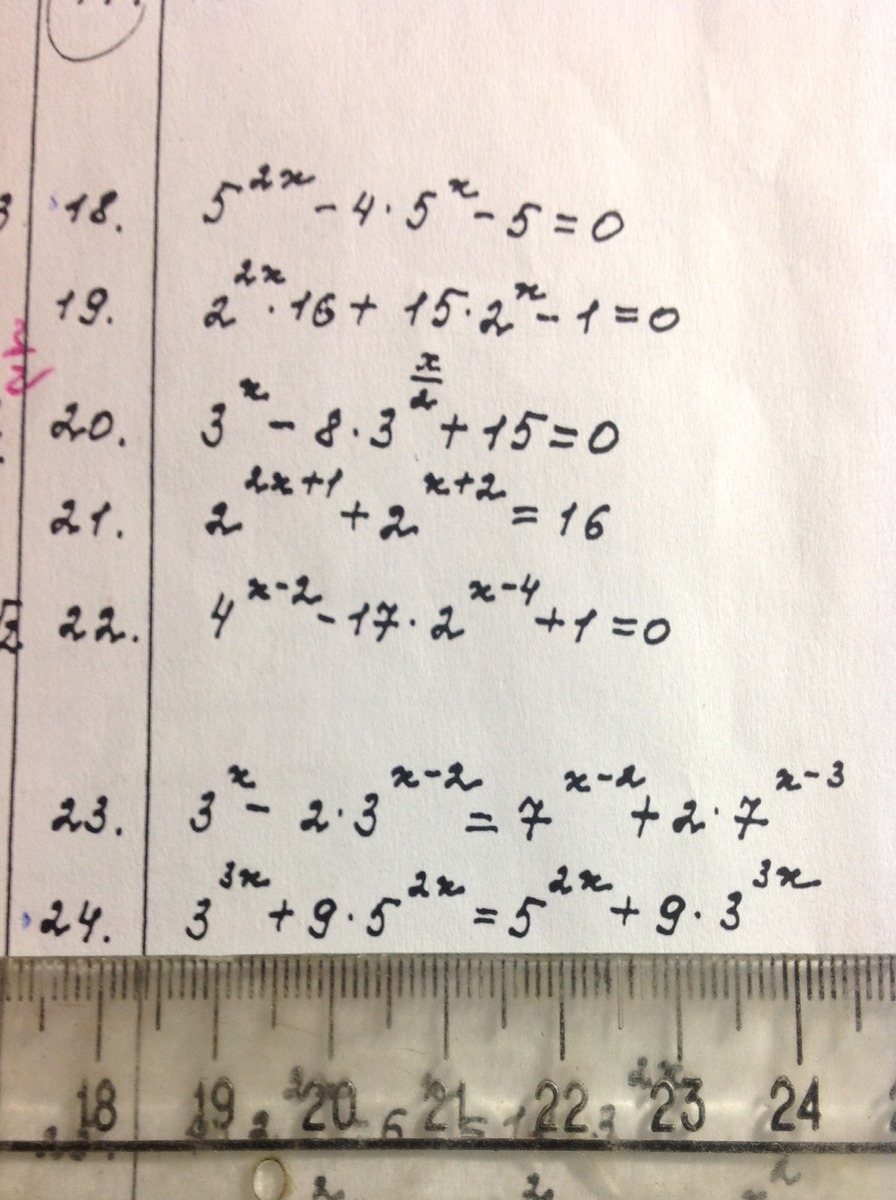 18. 5^{2x} - 4 · 5^x - 5 = 0
19. 2^{2x} · 16 + 15 · 2^x - 1 = 0
20. 3^x - 8 · 3^{x/2} + 15 = 0
21. 2^{2x+1} + 2^{x+2} = 16
22. 4^{x-2} - 17 · 2^{x-4} + 1 = 0
23. 3^x - 2 · 3^{x-2} = 7^{x-2} + 2 · 7^{x-3}
24. 3^{3x} + 9 · 5^{2x} = 5^{2x} + 9 · 3^{3x}
18 19 20 21 22 23 24